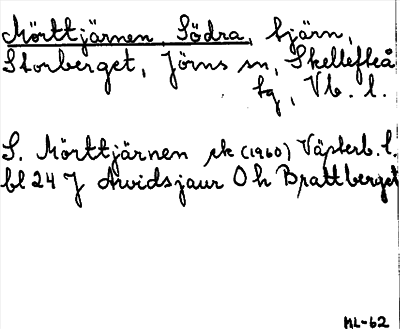 Mörttjärnen, Södra, tjärn,
Storberget, Jörns sn, Skellefteå
tg, Vb. l.
S. Mörttjärnen ek (1960) Västerb. l.
bl 24 J Arvidsjaur O h Brattberget
ML-62